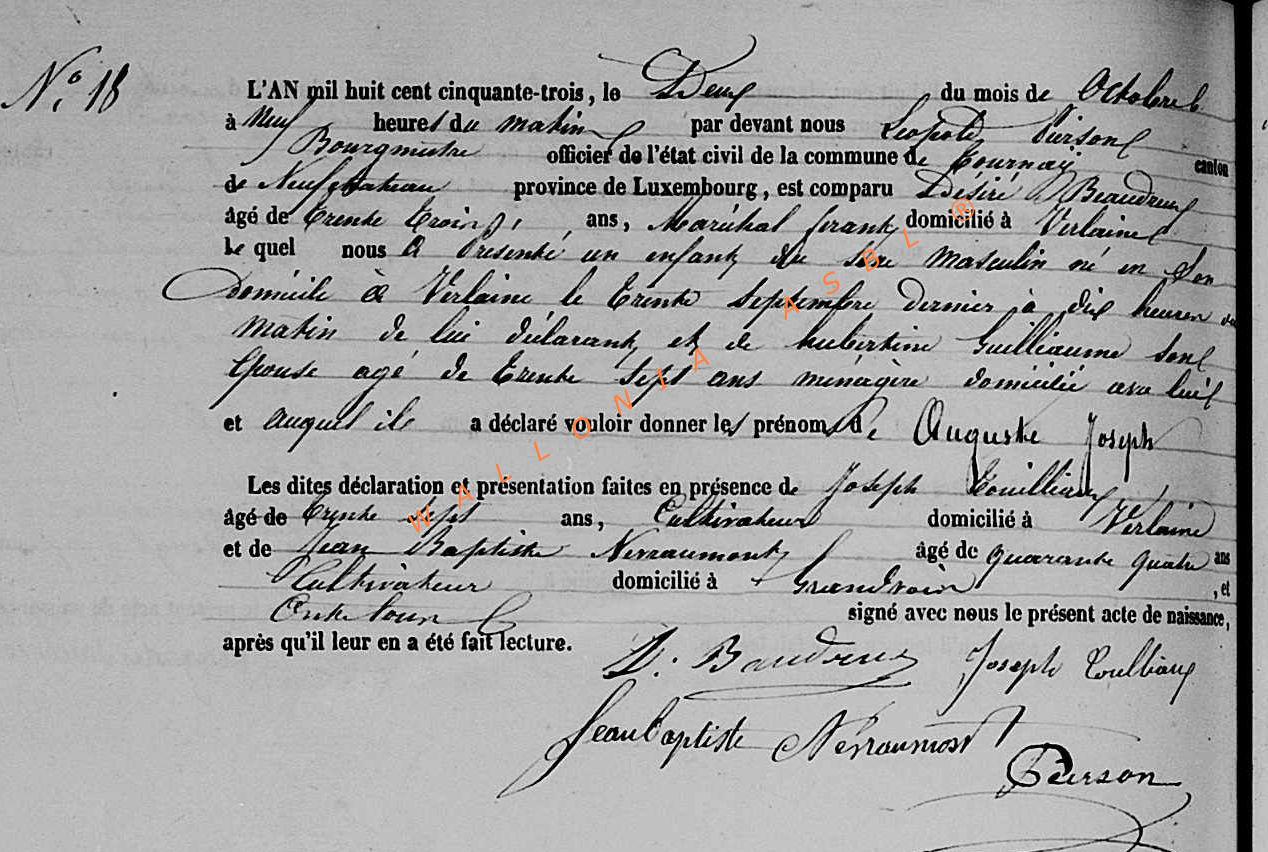 N.° 18
L'AN mil huit cent cinquante-trois, le Deux du mois de Octobre
à Neuf heures du matin par devant nous Léopold Pierson
Bourgmestre officier de l'état civil de la commune de Tournay canton
de Neufchateau province de Luxembourg, est comparu Désiré Beaudreux
âgé de trente trois, ans, Maréchal ferant domicilié à Verlaine
le quel nous a présenté un enfant du sexe masculin né en son
domicile à Verlaine le trente septembre dernier à dix heures du
matin de lui déclarant et de hubertine Guilliaume son
Epouse agé de trente sept ans ménagère domicilié avec lui
et auquel il a déclaré vouloir donner les prénoms de Auguste Joseph
Les dites déclaration et présentation faites en présence de Joseph
âgé de trente sept ans, Cultivateur domicilié à Verlaine
et de Jean Baptiste Nevraumont âgé de quarante quatre ans
Cultivateur domicilié à Grandvoir, et
Ont tous signé avec nous le présent acte de naissance,
après qu'il leur en a été fait lecture.
D. Baudreux Joseph
Jean Baptiste Nevraumont
Pierson
WALLONIA ASBL ®